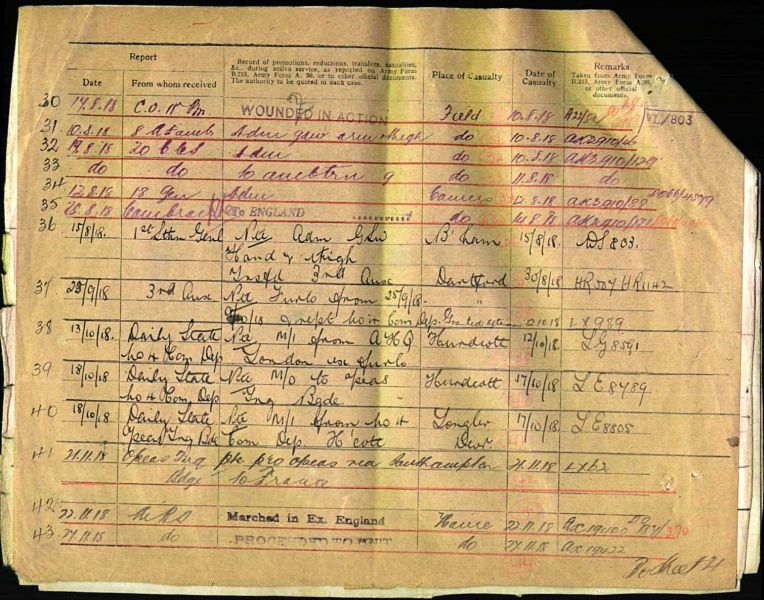 Report
Record of promotions, reductions, transfers, casualties, &c., during active service, as reported on Army Form B.213, Army Form A. 36, or in other official documents. The authority to be quoted in each case.
Place of Casualty
Date of Casualty
Remarks
Taken from Army Form B.213, Army Form A. 36, or other official documents.
Date From whom received
30 17.8.18 C.O. Bn WOUNDED IN ACTION Field 10.8.18
VL/803
31 10.8.18 8 A F amb Adm gsw arm thigh do 10.8.18
32 20 CCS Adm do 10.8.18
33 do do to ambtrn 9 do 11.8.18 do
34 12.8.18 18 Gen Adm Camiers 12.8.18
35 To ENGLAND do 14.8.18
36 15/8/18. 1st Sthn Genl Ntd Adm GSW B'ham 15/8/18. DS 803.
Hand & thigh
Trsfd 3rd Aux Dartford 30/8/18 HR 527 HR1142
37 3rd Aux Ntd Furlo from 25/9/18. "
& rept No 4 Com Dep. 12.10.18 LX989
38 13/10/18 Daily State Ntd M/I from AHQ Hurdcott 12/10/18. LG8591
No 4 Com Dep London ex Furlo
39 18/10/18 Daily State Ntd M/O to O'seas Hurdcott 17/10/18 LE8489
No 4 Com Dep Trg Bgde
40 18/10/18 Daily State Ntd M/I from No 4 Longbr 17/10/18 LE8805
O'seas Trg Bde Com Dep. H'cott Devr.
41 21.11.18 O'seas Trg pro o'seas via Southampton 21.11.18 LX62
Bdge to France
42 22.11.18 Marched in Ex. England Havre 22.11.18
43 27.11.18 do PROCEEDED TO UNIT do 27.11.18 AX19422